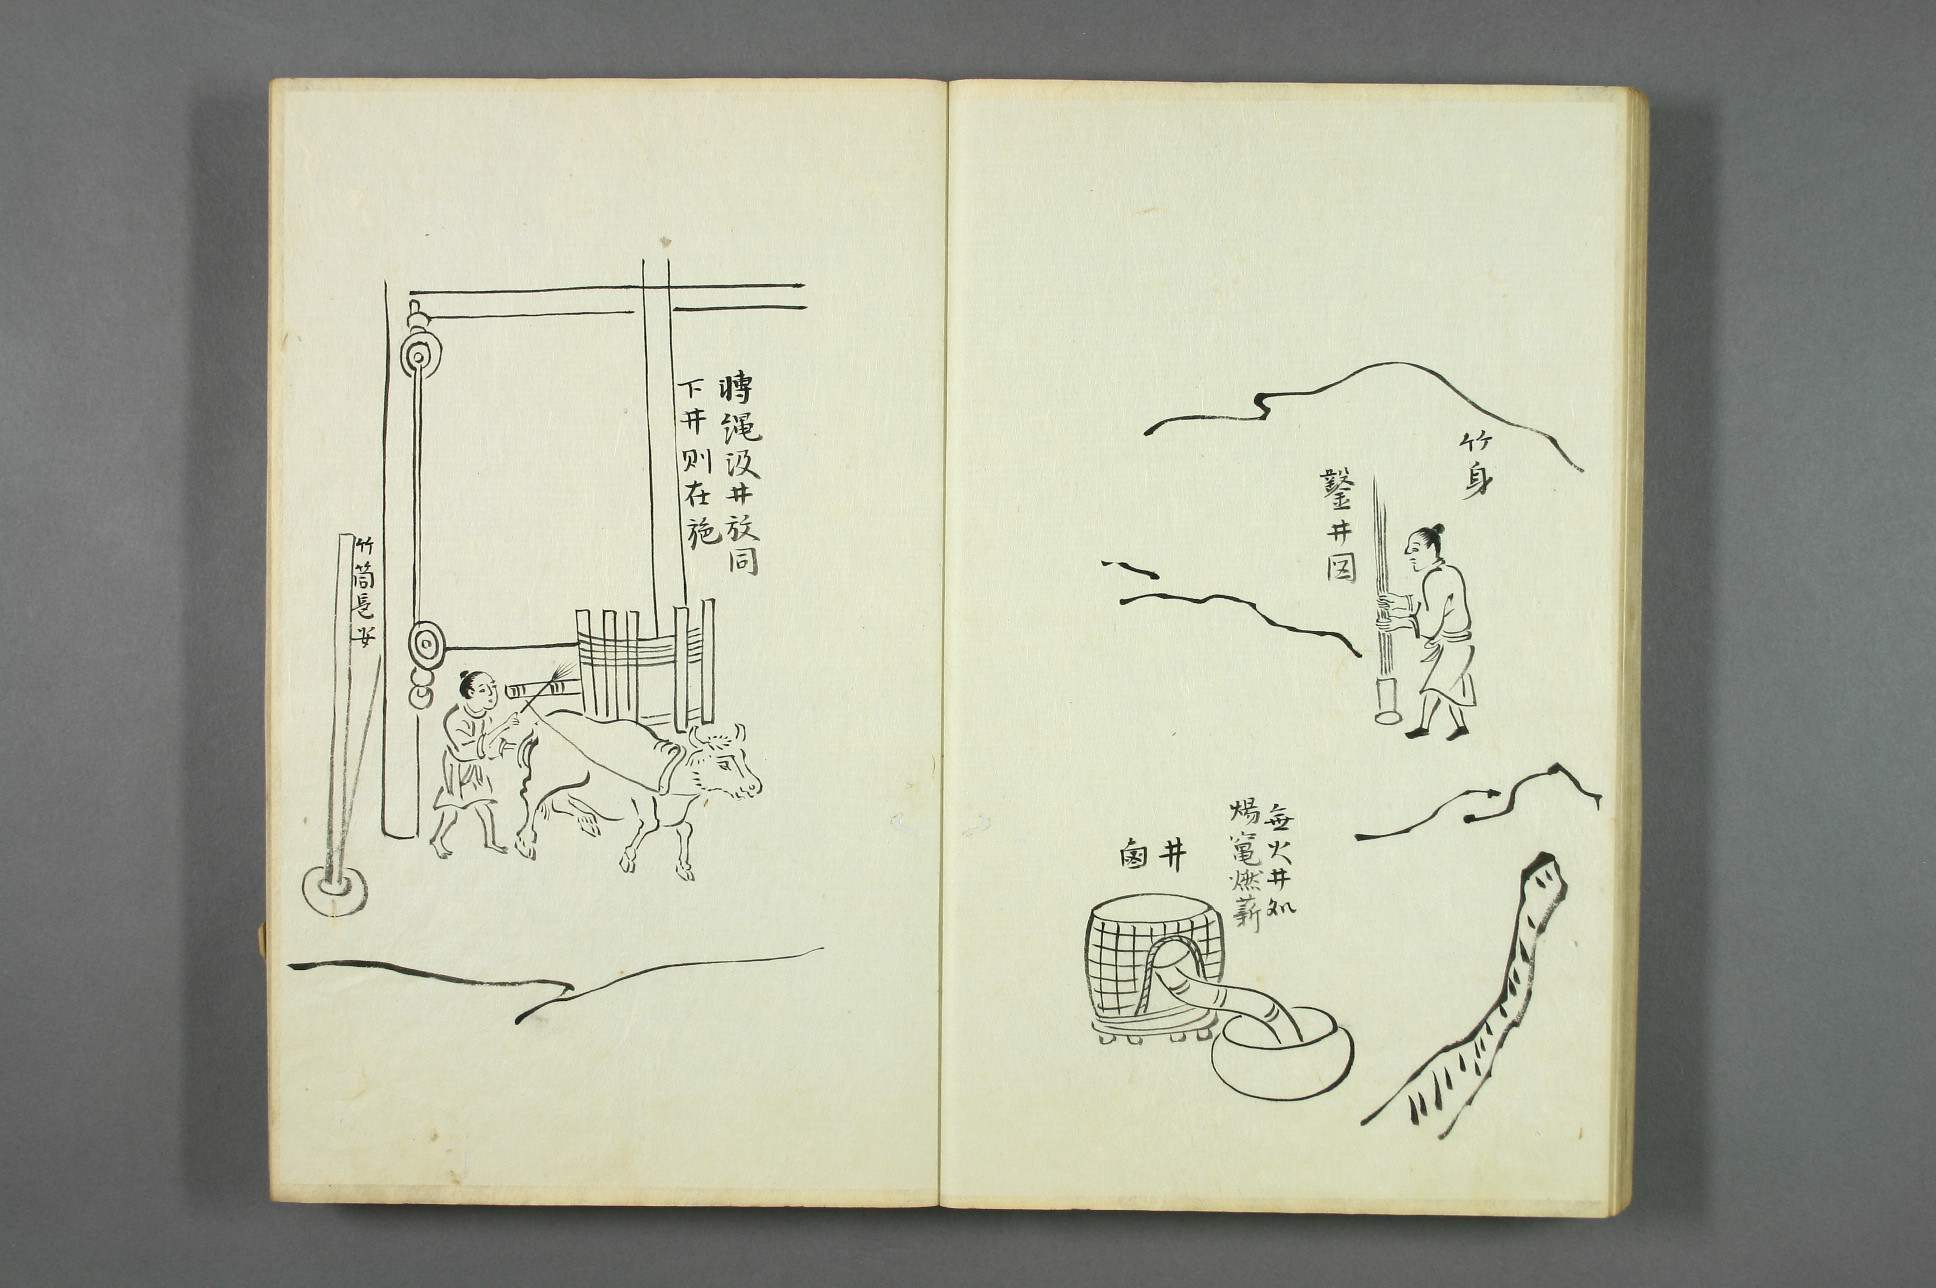 竹身
鑿井図
無火井処
煬竃燃薪
井
鹵
轉繩汲井放同
下井則在施
竹筒